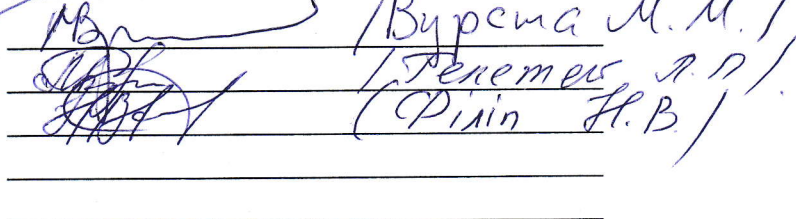 /Вурста М. М./
/Гелетей Л. П/
(Філіп Н. В./